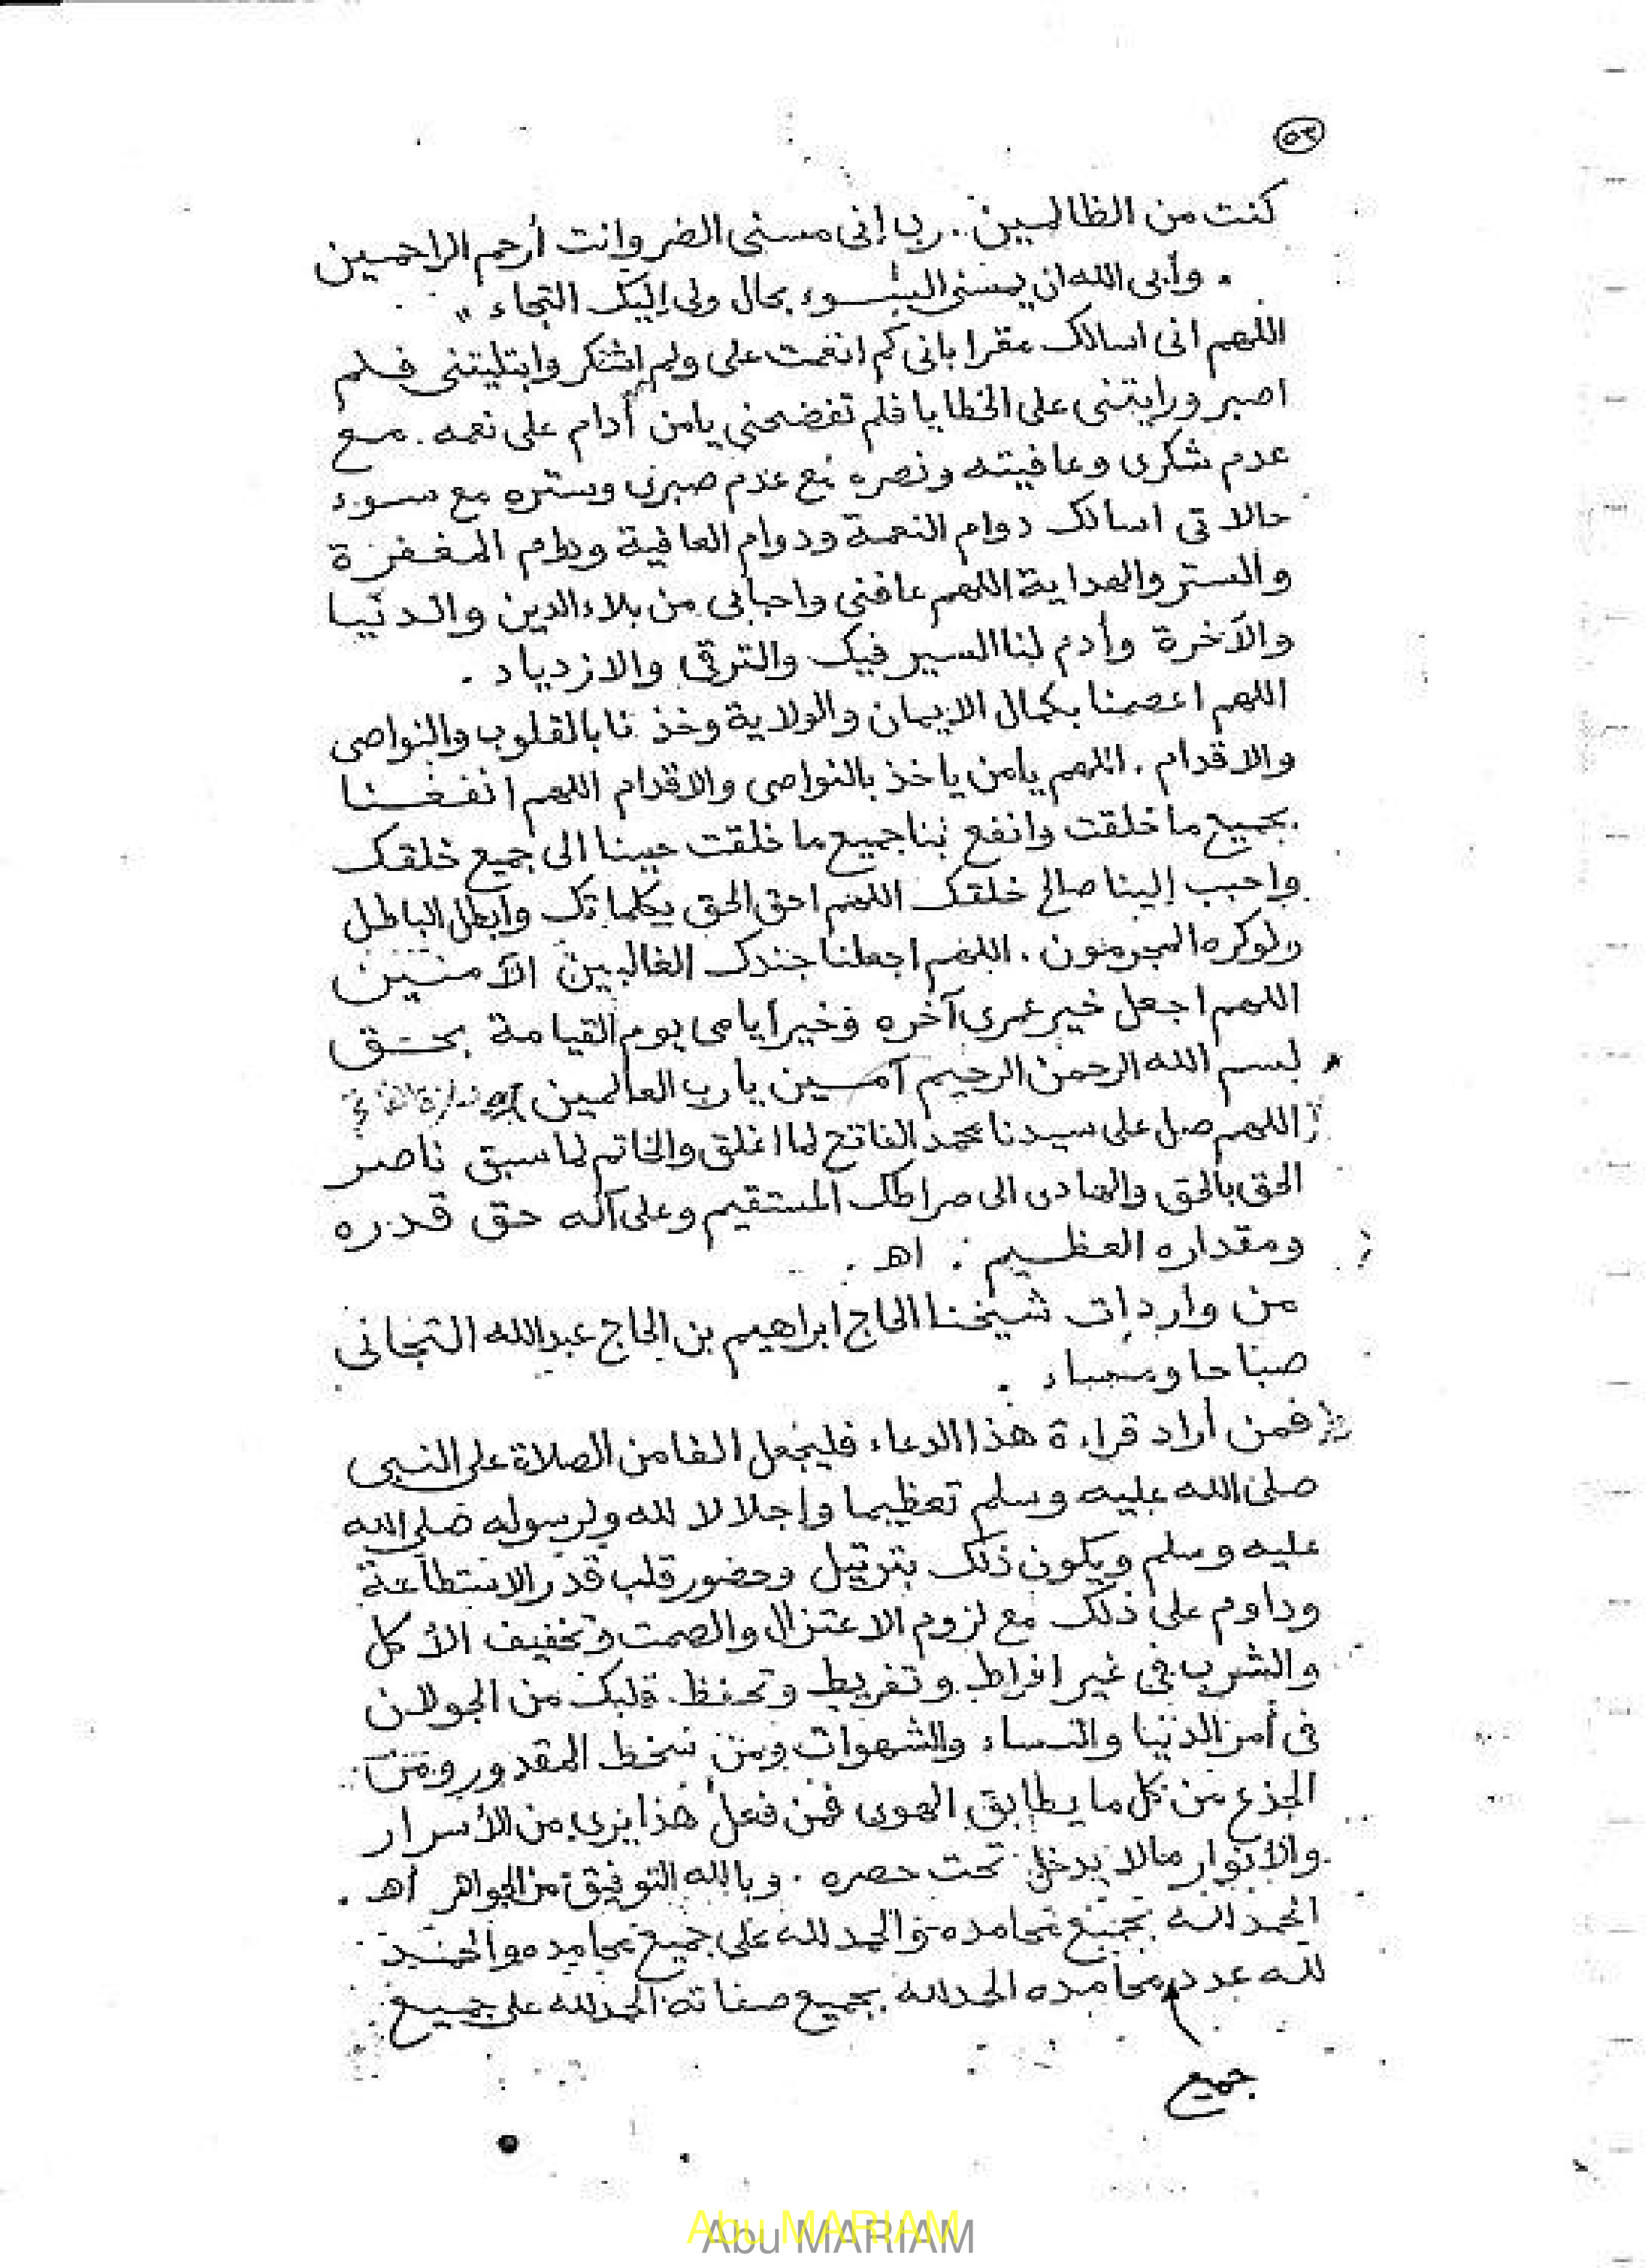 ٥٣
كنت من الظالمين .. رب إنى مسنى الضر وانت أرحم الراحمين
. وأبى الله ان يمسنى السوء بحال ولى إليك التجاء "
اللهم انى اسالك مقرا بانى كم انعمت على ولم اشكر وابتليتنى فلم
اصبر ورايتنى على الخطايا فلم تفضحنى يا من أدام على نعمه . مع
عدم شكرى وعافيته ونصره مع عدم صبرى وستره مع سوء
حالاتى اسالك دوام النعمة ودوام العافية ودوام المغفرة
والستر والهداية اللهم عافنى واحبابى من بلاء الدين والدنيا
والآخرة وأدم لنا السير فيك والترقى والازدياد .
اللهم اعصمنا بكمال الايمان والولاية وخذ نا بالقلوب والنواصى
والاقدام . اللهم يامن ياخذ بالنواصى والاقدام اللهم انفعنا
بجميع ما خلقت وانفع بنا جميع ما خلقت حببنا الى جميع خلقك
واحبب إلينا صالح خلقك اللهم احق الحق بكلماتك وابطل الباطل
ولوكره المجرمون . اللهم اجعلنا جندك الغالبين الآمنين
اللهم اجعل خير عمرى آخره وخير أيامى يوم القيامة بحق
* بسم الله الرحمن الرحيم آمين يارب العالمين
اللهم صل على سيدنا محمد الفاتح لما اغلق والخاتم لما سبق ناصر
الحق بالحق والهادى الى صراطك المستقيم وعلى آله حق قدره
ومقداره العظيم . اهـ .
من واردات شيخنا الحاج ابراهيم بن الحاج عبدالله التجانى
صباحا ومساء .
فمن أراد قراءة هذا الدعاء فليجعل الفا من الصلاة على النبى
صلى الله عليه وسلم تعظيما وإجلالا لله ولرسوله صلى الله
عليه وسلم ويكون ذلك بترتيل وحضور قلب قدر الاستطاعة
وداوم على ذلك مع لزوم الاعتزال والصمت وتخفيف الأكل
والشرب فى غير افراط وتفريط وتحفظ قلبك من الجولان
فى أمر الدنيا والنساء والشهوات ومن سخط المقدور ومن
الجزع من كل ما يطابق الهوى فمن فعل هذا يرى من الأسرار
والأنوار مالا يدخل تحت حصره . وبالله التوفيق من الجواهر اهـ .
الحمد لله بجميع محامده والحمد لله على جميع محامده والحمد
لله عدد محامده الحمد لله بجميع صفاته الحمد لله على جميع
جميع
Abu MARIAM